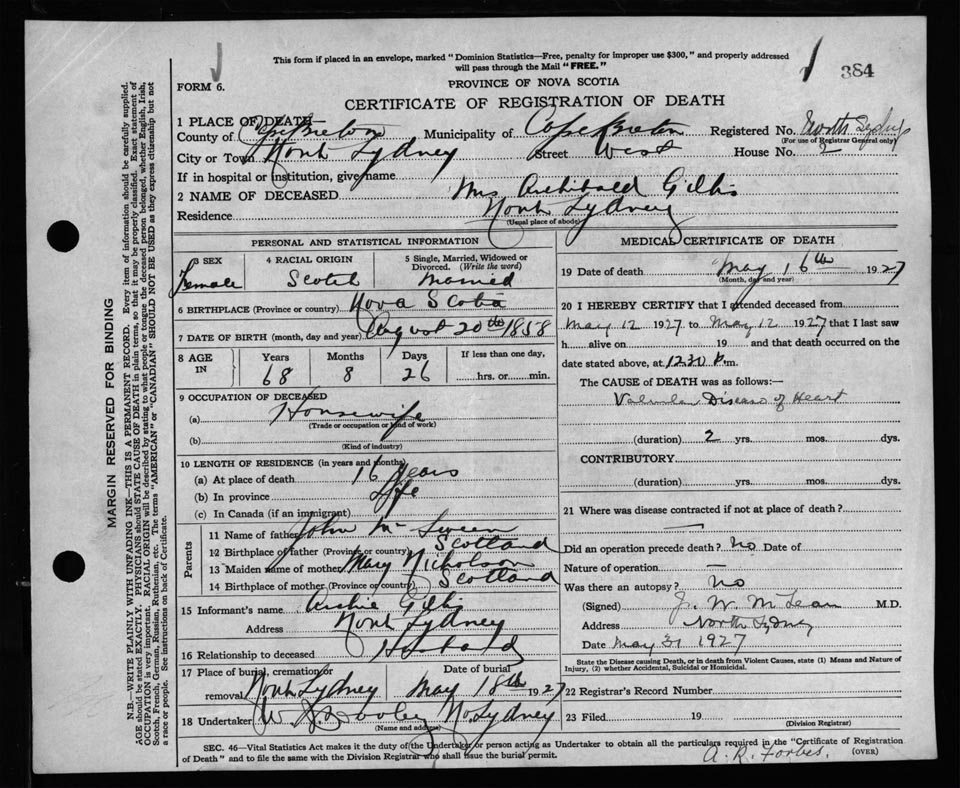 This form if placed in an envelope, marked "Dominion Statistics—Free, penalty for improper use $300," and properly addressed
will pass through the Mail "FREE."
384
FORM 6.
PROVINCE OF NOVA SCOTIA
CERTIFICATE OF REGISTRATION OF DEATH
1 PLACE OF DEATH—
County of Cape Breton Municipality of Cape Breton Registered No. North Sydney
(For use of Registrar General only)
City or Town North Sydney Street West House No. 2
If in hospital or institution, give name
2 NAME OF DECEASED Mrs Archibald Gillis
Residence North Sydney
(Usual place of abode)
PERSONAL AND STATISTICAL INFORMATION
3 SEX Female
4 RACIAL ORIGIN Scotch
5 Single, Married, Widowed or Divorced. (Write the word) Married
6 BIRTHPLACE (Province or country) Nova Scotia
7 DATE OF BIRTH (month, day and year) August 20th 1858
8 AGE IN Years Months Days If less than one day,
68 8 26 hrs. or min.
9 OCCUPATION OF DECEASED
(a) Housewife
(Trade or occupation or kind of work)
(b)
(Kind of industry)
10 LENGTH OF RESIDENCE (in years and months)
(a) At place of death 16 years
(b) In province Life
(c) In Canada (if an immigrant)
Parents
11 Name of father John Mc Sween
12 Birthplace of father (Province or country) Scotland
13 Maiden name of mother Mary Nicholson
14 Birthplace of mother (Province or country) Scotland
15 Informant's name Archie Gillis
Address North Sydney
16 Relationship to deceased Husband
17 Place of burial, cremation or removal North Sydney Date of burial May 18th 1927
18 Undertaker W. Dooley No. Sydney
(Name and address)
MEDICAL CERTIFICATE OF DEATH
19 Date of death May 16th 1927
(Month, day and year)
20 I HEREBY CERTIFY that I attended deceased from
May 12 1927 to May 12 1927 that I last saw
h alive on 19 and that death occurred on the
date stated above, at 12.30 P.m.
The CAUSE of DEATH was as follows:—
Valvular Disease of Heart
(duration) 2 yrs. mos. dys.
CONTRIBUTORY
(duration) yrs. mos. dys.
21 Where was disease contracted if not at place of death?
—
Did an operation precede death? No Date of
Nature of operation —
Was there an autopsy? no
(Signed) J. W. McLean M.D.
Address North Sydney
Date May 31 1927
State the Disease causing Death, or in death from Violent Causes, state (1) Means and Nature of
Injury, (2) whether Accidental, Suicidal or Homicidal.
22 Registrar's Record Number
23 Filed 19
(Division Registrar)
SEC. 46—Vital Statistics Act makes it the duty of the Undertaker or person acting as Undertaker to obtain all the particulars required in the "Certificate of Registration
of Death" and to file the same with the Division Registrar who shall issue the burial permit. A. R. Forbes. (OVER)
MARGIN RESERVED FOR BINDING
N.B.—WRITE PLAINLY WITH UNFADING INK—THIS IS A PERMANENT RECORD. Every item of information should be carefully supplied.
AGE should be stated EXACTLY. PHYSICIANS should STATE CAUSE OF DEATH in plain terms, so that it may be properly classified. Exact statement of
OCCUPATION is very important. RACIAL ORIGIN will be described by stating to what people or tongue the deceased person belonged, whether English, Irish,
Scotch, French, German, Russian, Ruthenian, etc. The terms "AMERICAN" or "CANADIAN" SHOULD NOT BE USED as they express citizenship but not
a race or people. See instructions on back of Certificate.